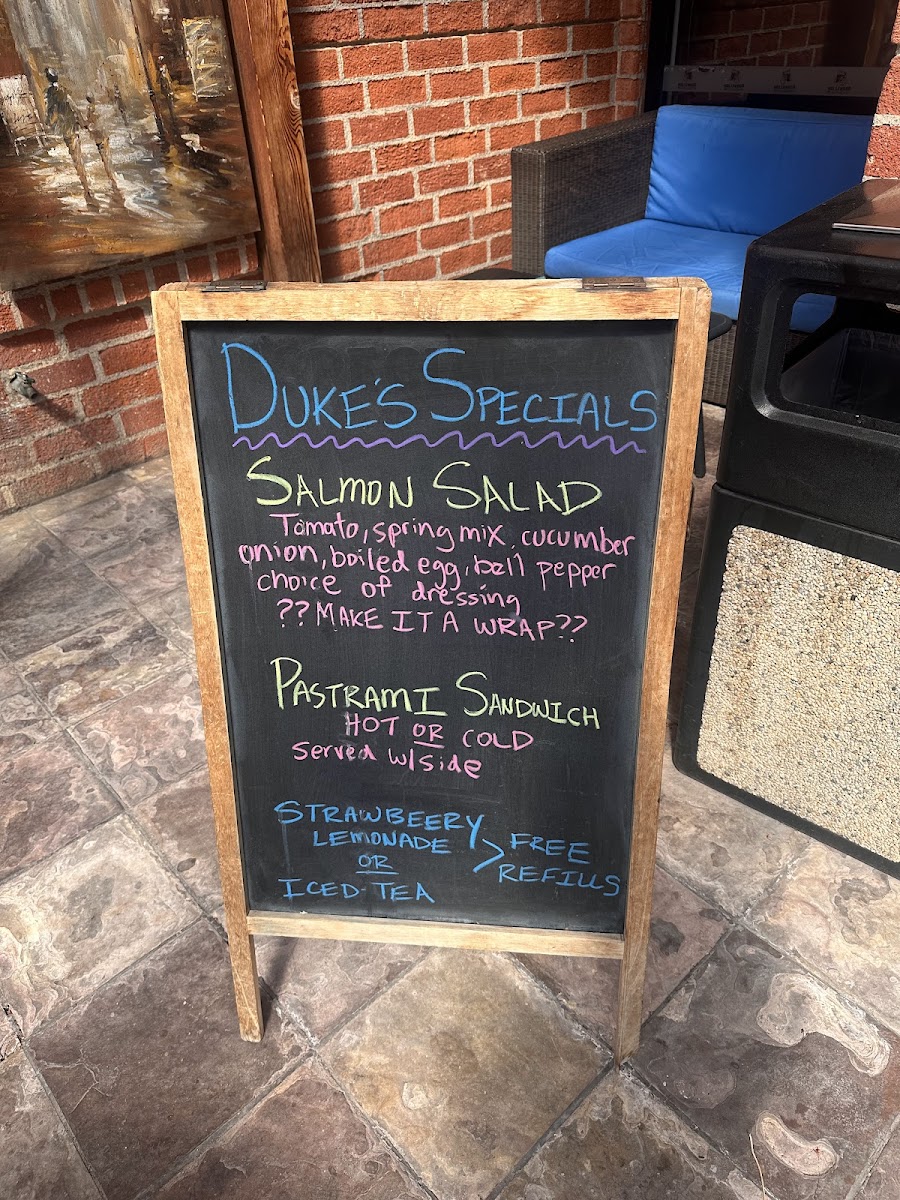 DUKE'S SPECIALS
SALMON SALAD
Tomato, spring mix, cucumber
onion, boiled egg, bell pepper
choice of dressing
?? MAKE IT A WRAP ??
PASTRAMI SANDWICH
HOT OR COLD
Served w/side
STRAWBEERY
LEMONADE
OR
ICED-TEA
> FREE
REFILLS